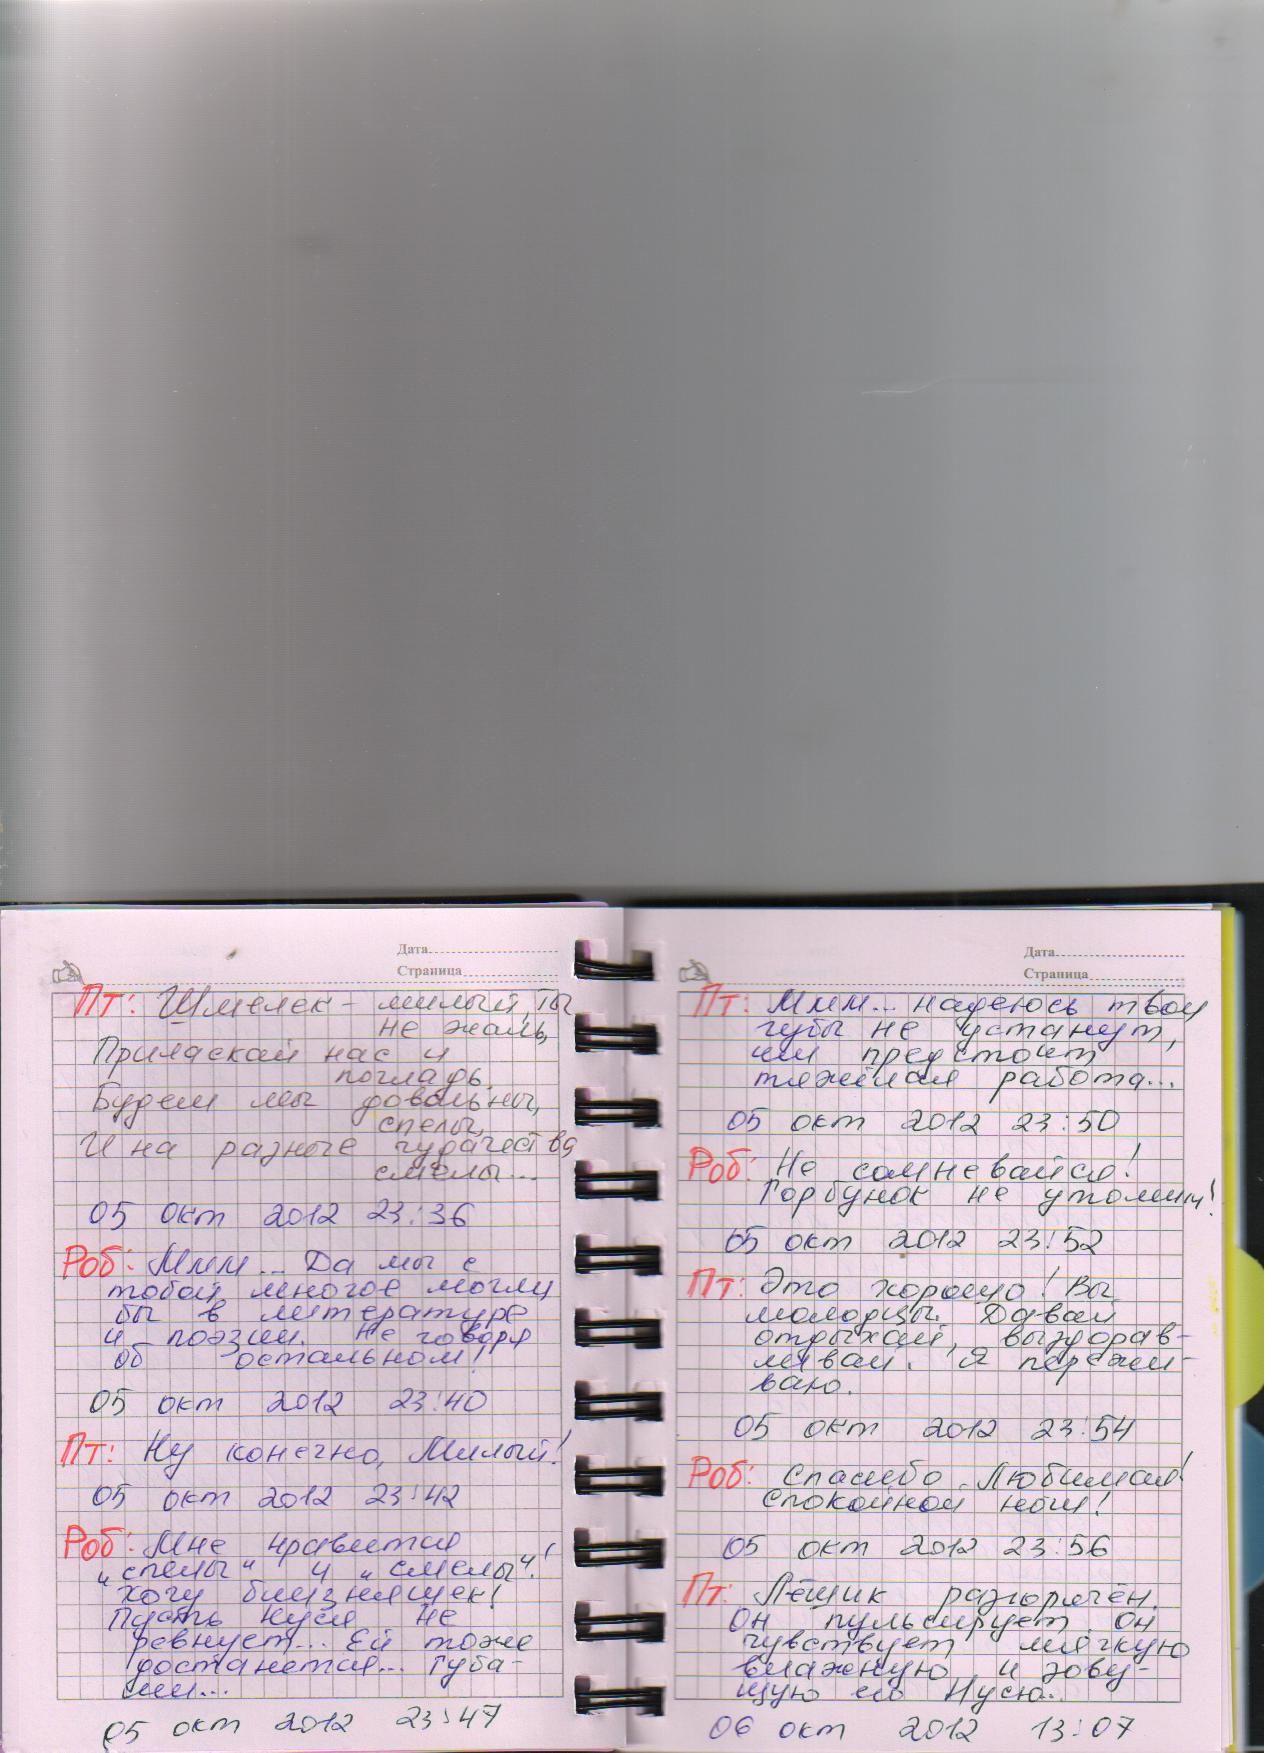 Дата
Страница
Пт: Шмелек - милый, ты
не жаль,
Приласкай нас и
погладь.
Будем мы довольны,
спелы,
И на разные чудачества
смелы...
05 окт 2012 23:36
Роб: Ммм... Да мы с
тобой многое могли
бы в литературе
и поэзии. Не говоря
об остальном!
05 окт 2012 23:40
Пт: Ну конечно, Милый!
05 окт 2012 23:42
Роб: Мне нравится
„спелы" и „смелы"!
Хочу близняшек!
Пусть Нуся не
ревнует... Ей тоже
достанется... Губа-
ми...
05 окт 2012 23:47
Дата
Страница
Пт: Ммм... надеюсь твои
губы не устанут,
им предстоит
тяжёлая работа...
05 окт 2012 23:50
Роб: Не сомневайся!
Горбунок не утомим!
05 окт 2012 23:52
Пт: Это хорошо! Вы
молодцы. Давай
отдыхай, выздорав-
ливай. Я пережи-
ваю.
05 окт 2012 23:54
Роб: Спасибо Любимая!
Спокойной ночи!
05 окт 2012 23:56
Пт: Лёшик разгорячён.
Он пульсирует, он
чувствует мягкую
влажную и зову-
щую его Нусю...
06 окт 2012 13:07